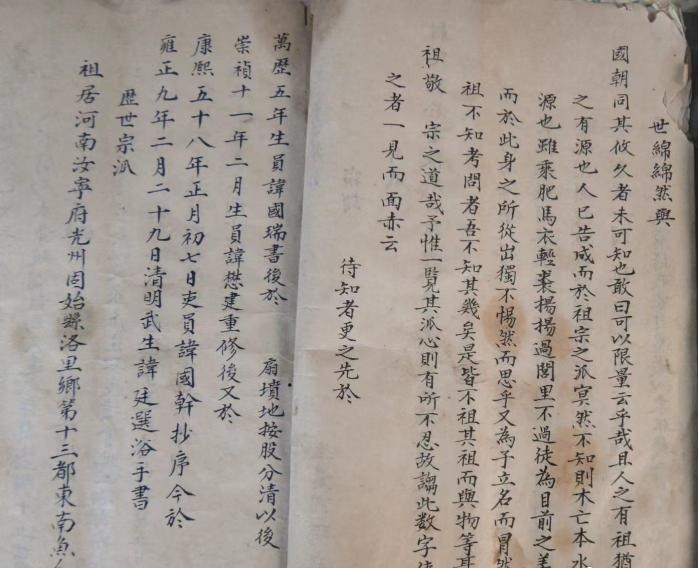 世綿綿然與
國朝同其攸久者未可知也敢曰可以限量云乎哉且人之有祖猶
之有源也人已告咸而於祖宗之派冥然不知則木亡本水
源也雖乘肥馬衣輕裘揚揚過閭里不過徒為目前之美
而於此身之所從出獨不惕然而思乎又為子立名而冒然
祖不知考問者吾不知其幾矣是皆不祖其祖而與物等耳
祖敬 宗之道哉予惟一覽其派心則有所不忍故謅此数字使
之者一見而面赤云
待知者更之先於
萬歷五年生員諱國瑞書後於 扇墳地按股分清以後
崇禎十一年二月生員諱懋建重修後又於
康熙五十八年正月初七日吏員諱國幹抄序今於
雍正九年二月二十九日清明武生諱廷選浴手書
歷世宗派
祖居河南汝寧府光州固始縣洛里鄉第十三都東南魚